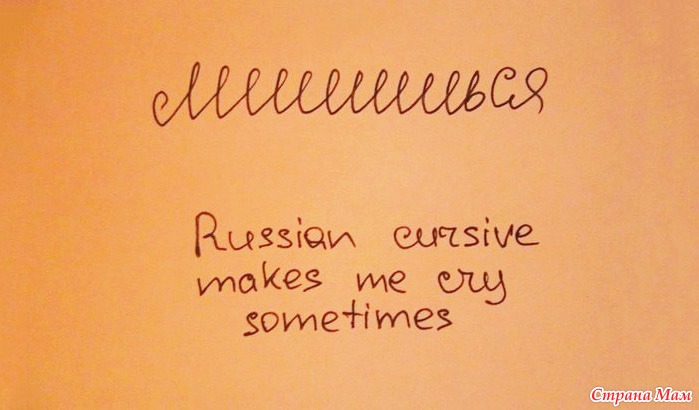 лишишься
Russian cursive
makes me cry
sometimes
Страна Мам